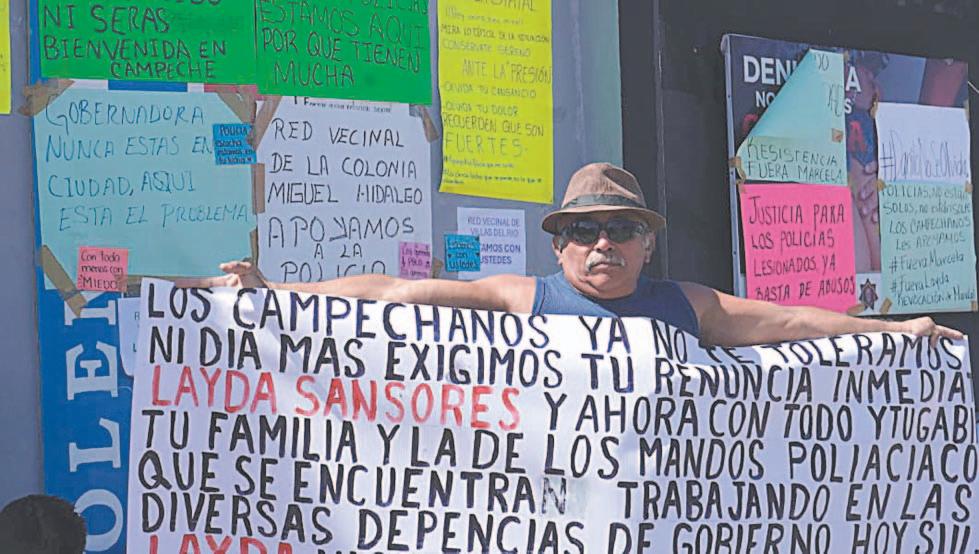 NI SERAS
BIENVENIDA EN
CAMPECHE
ESTAMOS AQUI
POR QUE TIENEN
MUCHA
MIRA LO DIFICIL DE LA SITUACIÓN
CONSERVATE SERENO
ANTE LA "PRESIÓN"
-OLVIDA TU CANSANCIO
-OLVIDA TU DOLOR
RECUERDEN QUE SON
FUERTES-
GOBERNADORA
NUNCA ESTAS EN
CIUDAD, AQUI
ESTA EL PROBLEMA
Con todo
menos con
MIEDO
RED VECINAL
DE LA COLONIA
MIGUEL HIDALGO
APOYAMOS
A LA
POLICIA
RED VECINAL DE
VILLAS DEL RIO
ESTAMOS CON
USTEDES
DEN
NO
RESISTENCIA
FUERA MARCELA
JUSTICIA PARA
LOS POLICIAS
LESIONADOS, YA
BASTA DE ABUSOS
POLICIAS, NO ESTAN
SOLOS,
LOS CAMPECHANOS
LES APOYAMOS
#Fuera Marcela
#Fuera Layda
REVOCACIÓN
OLE
LOS CAMPECHANOS YA NO TE TOLERAMOS
NI DIA MAS EXIGIMOS TU RENUNCIA INMEDIA
LAYDA SANSORES Y AHORA CON TODO Y TU GABI
TU FAMILIA Y LA DE LOS MANDOS POLIACIACO
QUE SE ENCUENTRAN TRABAJANDO EN LAS
DIVERSAS DEPENCIAS DE GOBIERNO HOY SIN
LAYDA